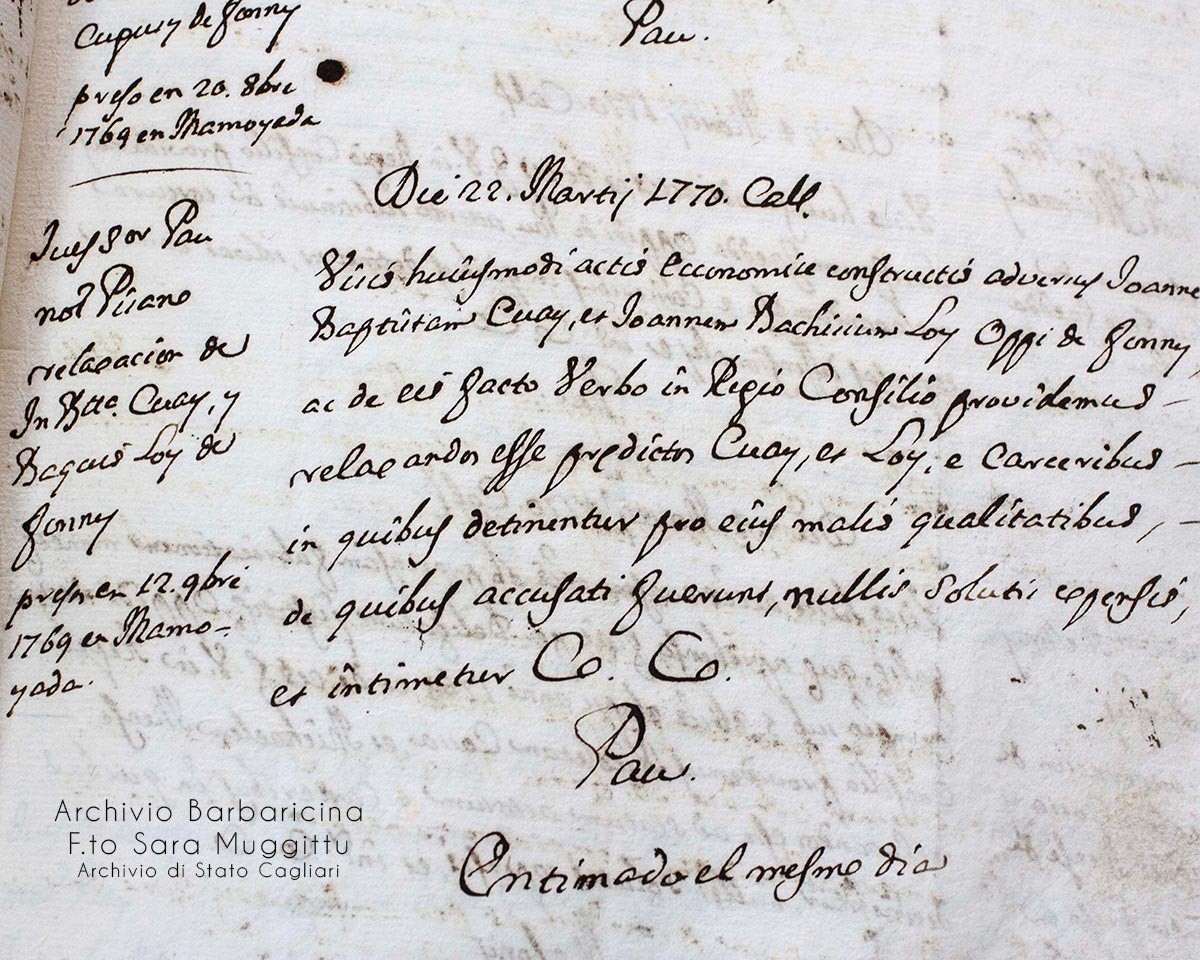 de Fonny
Pau.
preso en 20. 8bre
1769 en Mamoyada
Die 22. Martij 1770. Call.
Juez Sor Pau
not Pisano
relaxacion de
Jn Btta. Cuay, y
Baquis Loy de
Fonny
preson en 12. 9bri
1769 en Mamo-
yada.
Visis huiusmodi actis Economice constructis adversus Joanne
Baptistam Cuay, et Joannem Bachisium Loy Oppi de Fonny,
ac de eis facto Verbo in Regio Consilio providemus -
relaxandos esse predictos Cuay, et Loy, e Carceribus -
in quibus detinentur pro eius malis qualitatibus, -
de quibus accusati fuerunt, nullis solutis expensis,
et intimetur Co. Co.
Pau.
Entimado el mesmo dia
Archivio Barbaricina
F.to Sara Muggittu
Archivio di Stato Cagliari